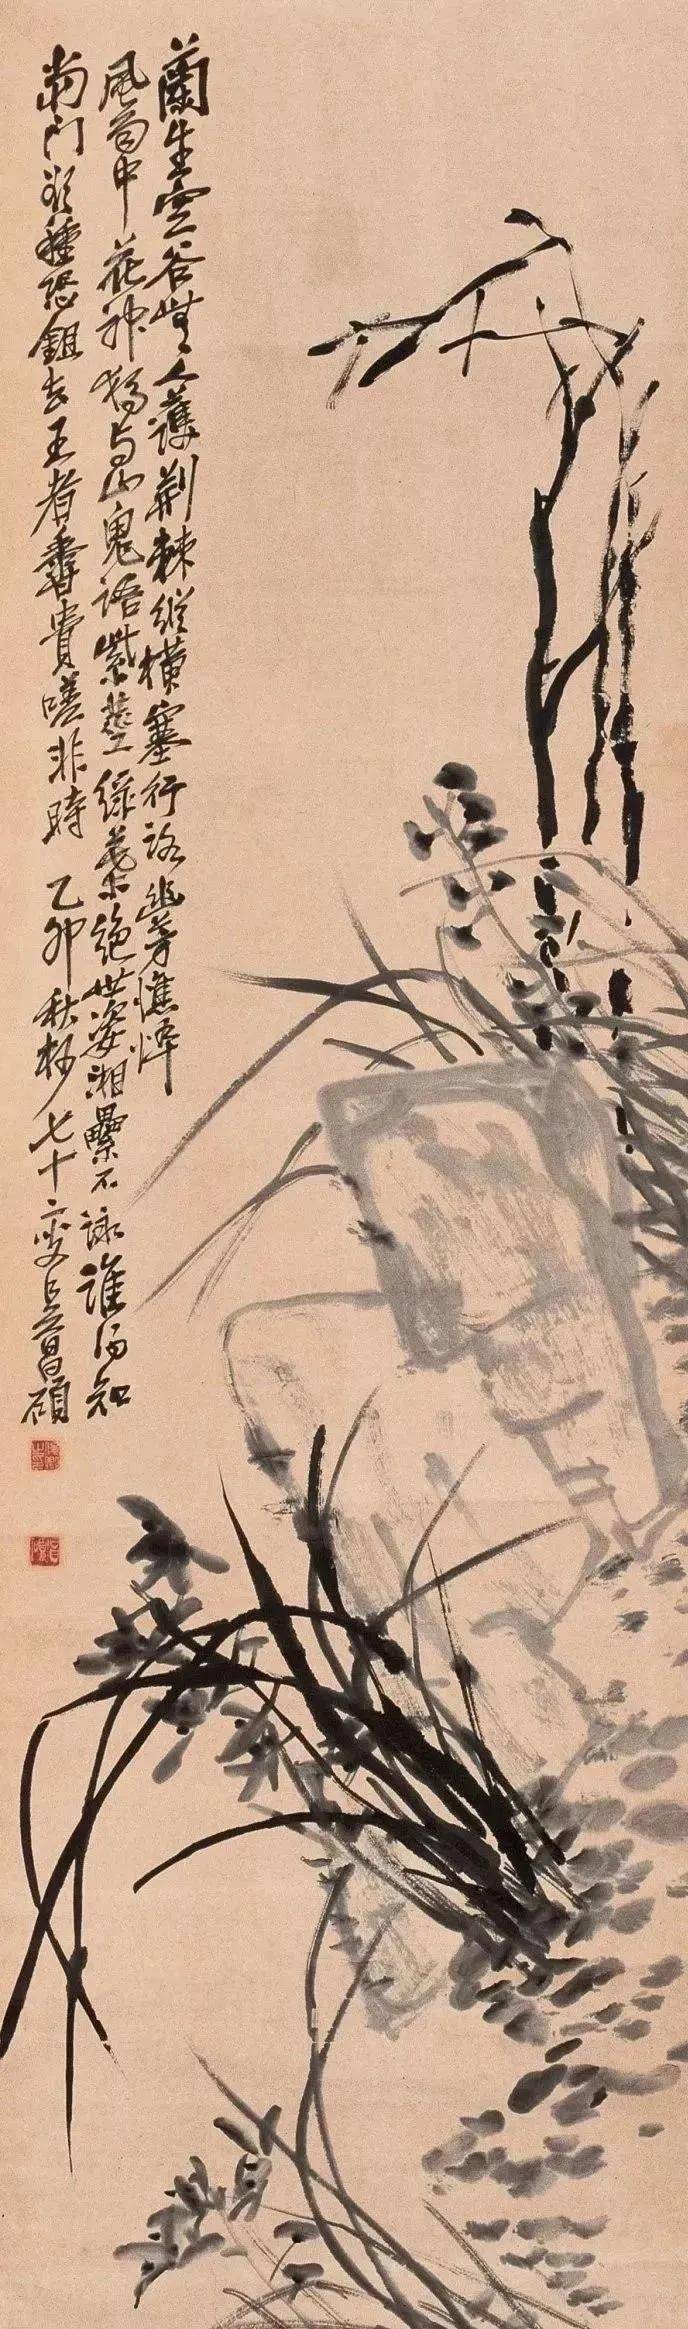 蘭生空谷無人護荊棘縱橫塞行路幽芳憔悴
風雨中花神猶與山鬼語紫莖綠葉絕世姿湘纍不詠誰得知
當門欲種恐鉏去王者香貴嗟非時　乙卯秋杪七十二叟吳昌碩